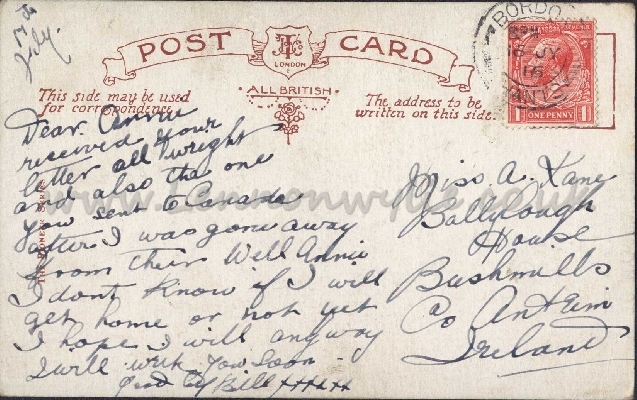 7th
July.
POST CARD
LONDON
ALL BRITISH
This side may be used
for correspondence
The address to be
written on this side.
BORDON
JY
16
ONE PENNY
1 1
Dear Annie
received your
letter all wright
and also the one
you sent to Canada
after I was gone away
from their Well Annie
I dont know if I will
get home or not yet
I hope I will anyway
I will write you soon
good by Bill ++++++
Miss A. Kane
Ballylough
House
Bushmills
Co Antrim
Ireland